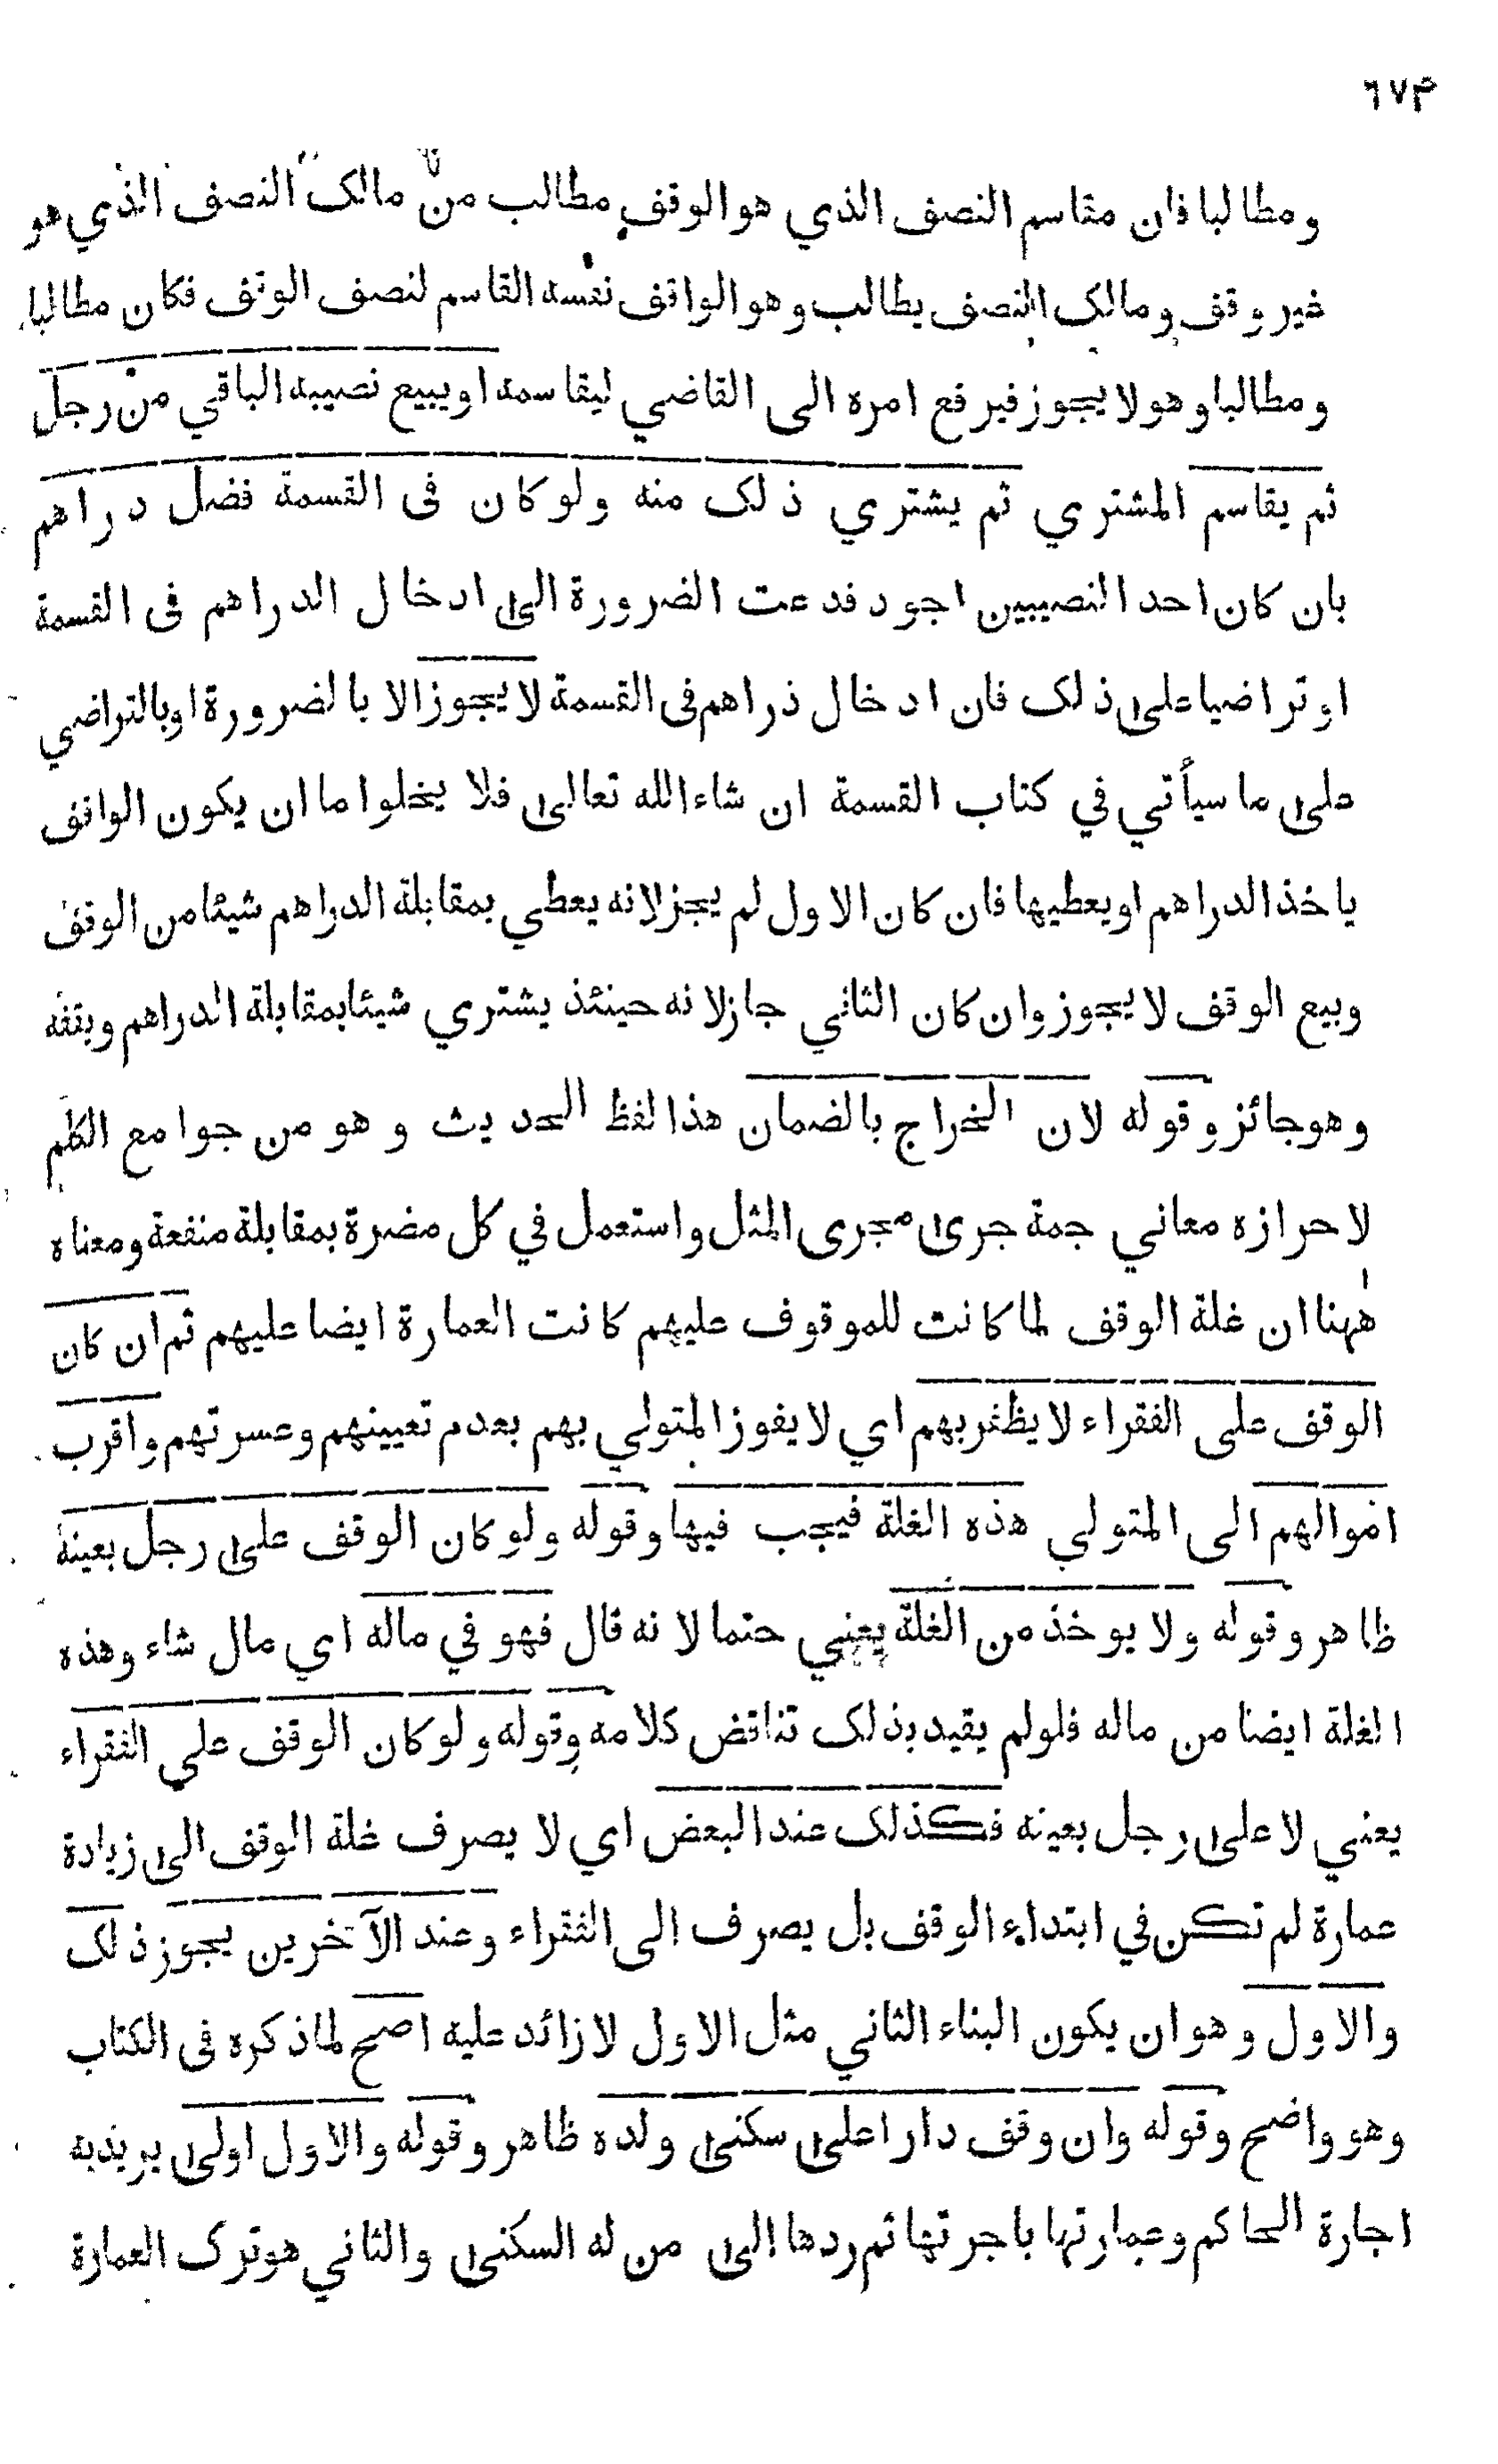 ٦٧٣
ومطالبا فان مقاسم النصف الذي هو الوقف مطالب من مالك النصف الذي هو
غير وقف ومالك النصف يطالب وهو الواقف نفسه القاسم لنصف الوقف فكان مطالبا
ومطالبا وهو لا يجوز فيرفع امره الى القاضي ليقاسمه او يبيع نصيبه الباقي من رجل
ثم يقاسم المشتري ثم يشتري ذلك منه ولو كان في القسمة فضل دراهم
بان كان احد النصيبين اجود فدعت الضرورة الى ادخال الدراهم في القسمة
او تراضيا على ذلك فان ادخال دراهم في القسمة لا يجوز الا بالضرورة او بالتراضي
على ما سيأتي في كتاب القسمة ان شاء الله تعالى فلا يخلوا ما ان يكون الواقف
ياخذ الدراهم او يعطيها فان كان الاول لم يجز لانه يعطي بمقابلة الدراهم شيئا من الوقف
وبيع الوقف لا يجوز وان كان الثاني جاز لانه حينئذ يشتري شيئا بمقابلة الدراهم ويقفه
وهو جائز وقوله لان الخراج بالضمان هذا لفظ الحديث وهو من جوامع الكلم
لاحرازه معاني جمة جرى مجرى المثل واستعمل في كل مضرة بمقابلة منفعة ومعناه
ههنا ان غلة الوقف لما كانت للموقوف عليهم كانت العمارة ايضا عليهم ثم ان كان
الوقف على الفقراء لا يظفر بهم اي لا يفوز المتولي بهم بعدم تعيينهم وعسرتهم واقرب
اموالهم الى المتولي هذه الغلة فيجب فيها وقوله ولو كان الوقف على رجل بعينه
ظاهر وقوله ولا يوخذ من الغلة يعني حتما لانه قال فهو في ماله اي مال شاء وهذه
الغلة ايضا من ماله فلو لم يقيد بذلك تناقض كلامه وقوله ولو كان الوقف على الفقراء
يعني لا على رجل بعينه فكذلك عند البعض اي لا يصرف غلة الوقف الى زيادة
عمارة لم تكن في ابتداء الوقف بل يصرف الى الفقراء وعند الآخرين يجوز ذلك
والاول وهو ان يكون البناء الثاني مثل الاول لا زائد عليه اصح لما ذكره في الكتاب
وهو واضح وقوله وان وقف دارا على سكنى ولده ظاهر وقوله والاول اولى يريد به
اجارة الحاكم وعمارتها باجرتها ثم ردها الى من له السكنى والثاني هو ترك العمارة